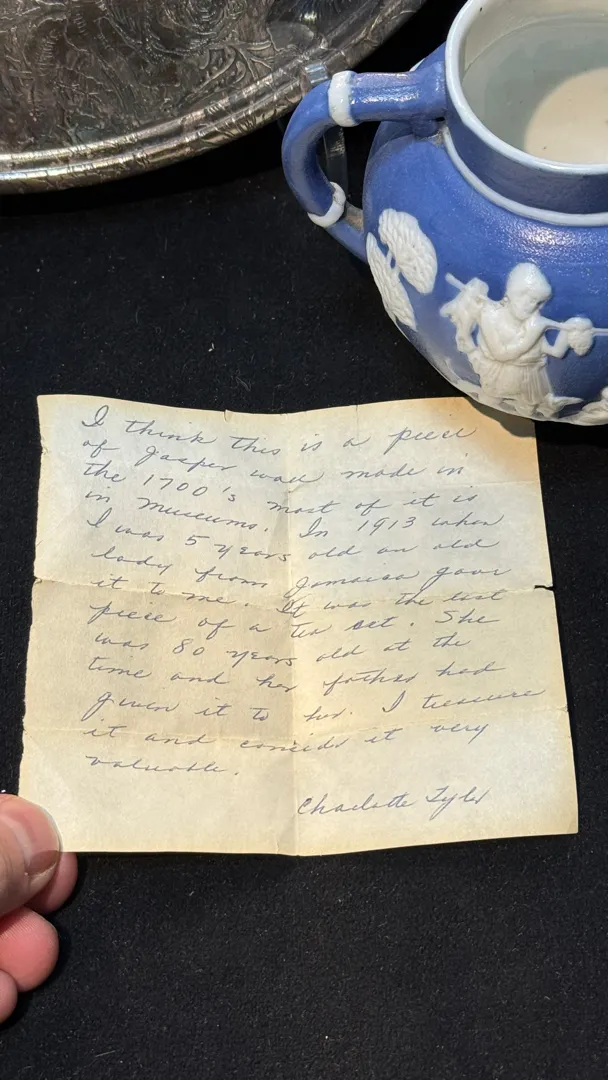 I think this is a piece
of Jasper wall made in
the 1700's most of it is
in museums. In 1913 when
I was 5 years old an old
lady from Jamaica gave
it to me. It was the last
piece of a tea set. She
was 80 years old at the
time and her father had
given it to her. I treasure
it and consider it very
valuable.
Charlotte Tyler